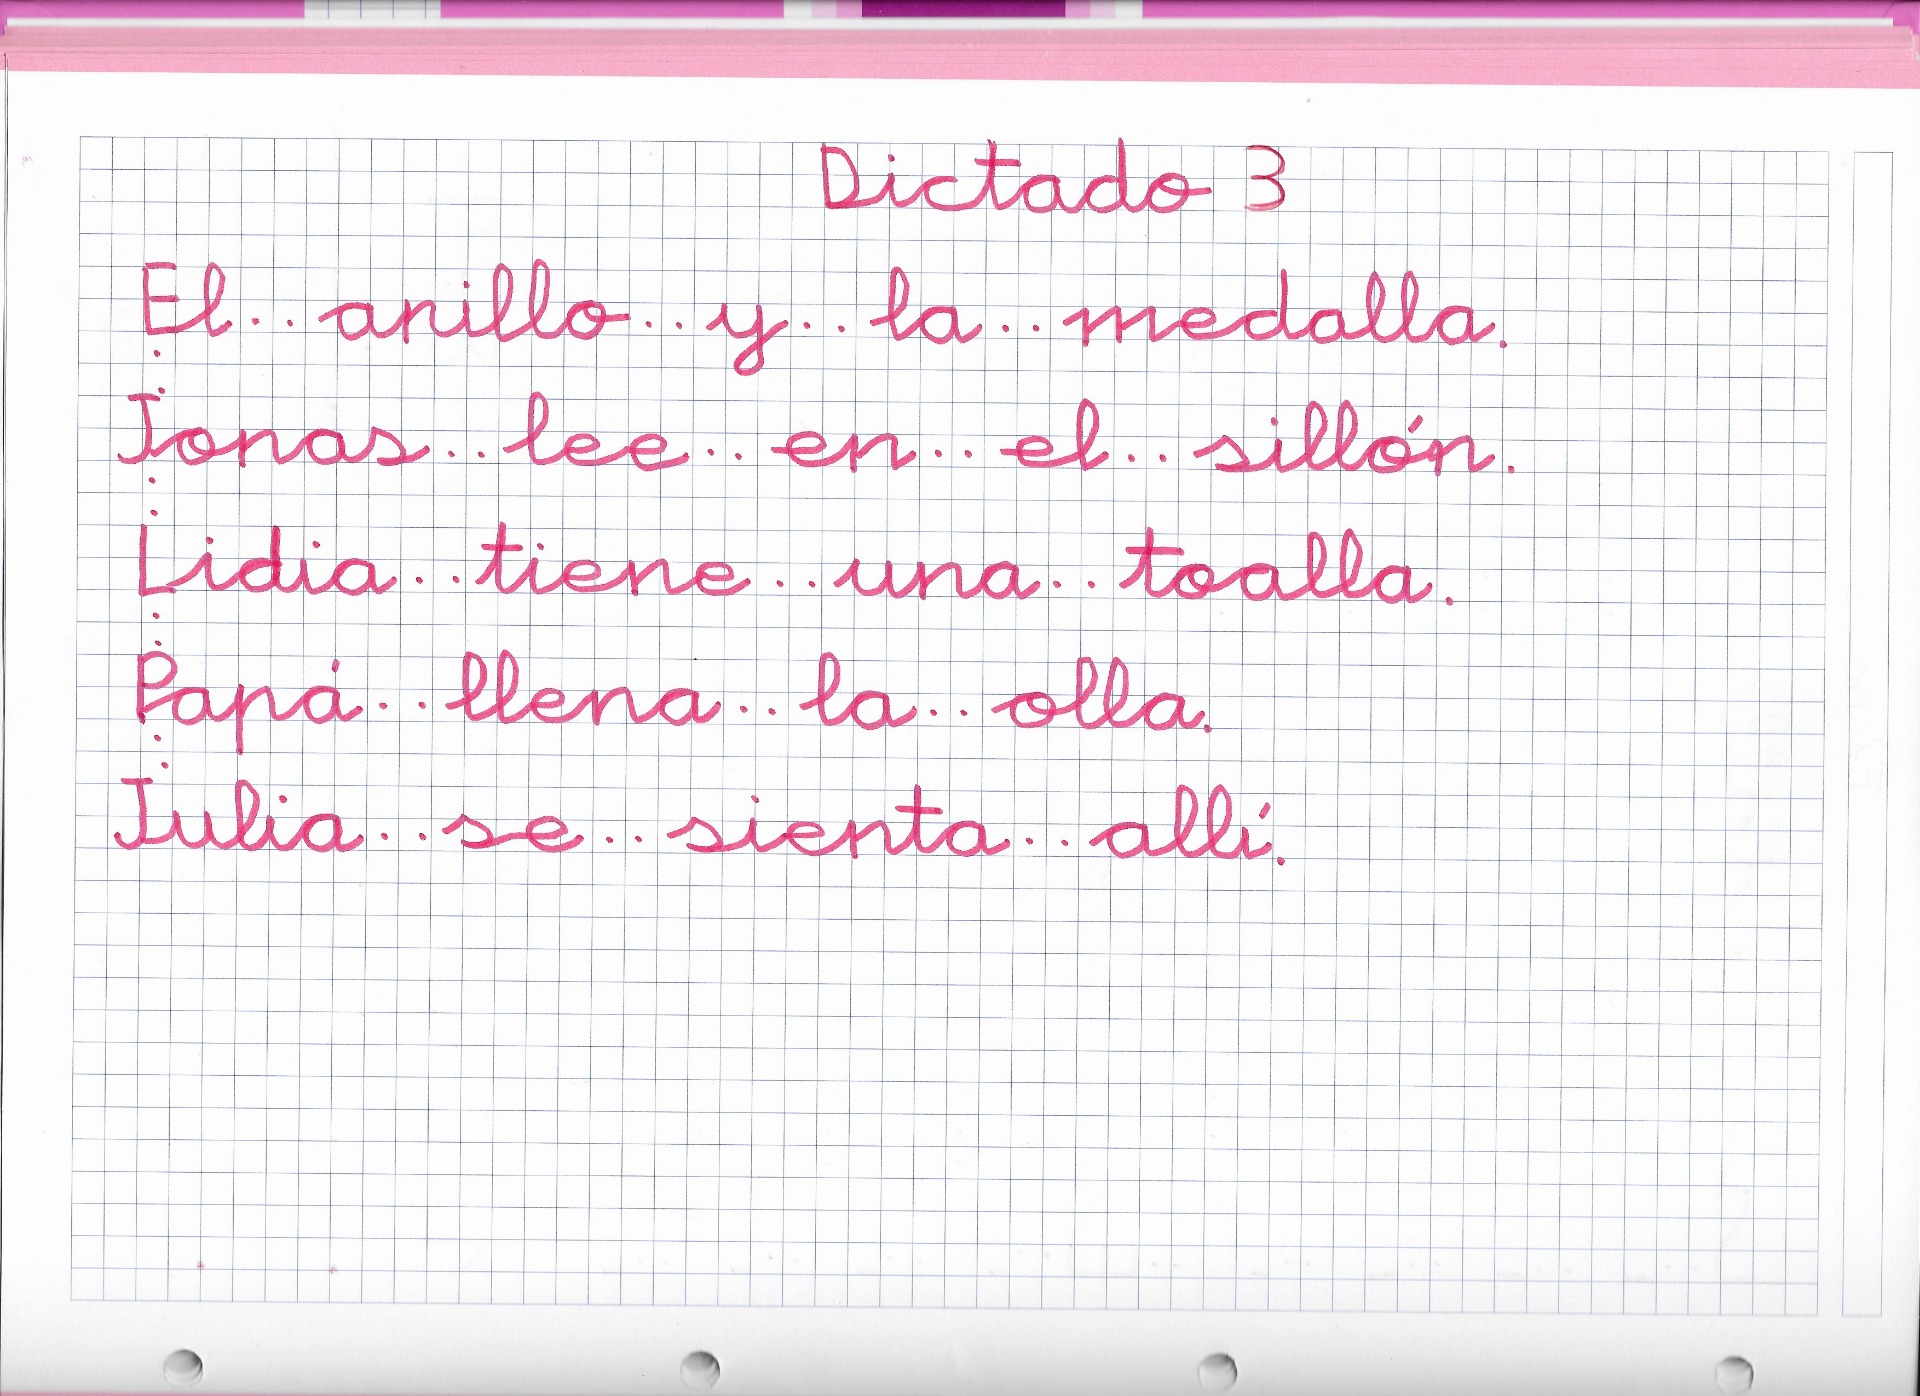 Dictado 3
El.. anillo.. y.. la.. medalla.
Jonas.. lee.. en.. el.. sillón.
Lidia.. tiene.. una.. toalla.
Papá.. llena.. la.. olla.
Julia.. se.. sienta.. allí.